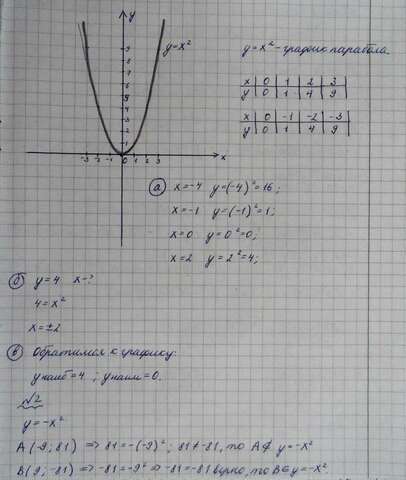 y
9
8
7
6
5
4
3
2
1
0
-3 -2 -1 1 2 3 x
y=x²
y=x² - график парабола.
x 0 1 2 3
y 0 1 4 9
x 0 -1 -2 -3
y 0 1 4 9
а) x=-4 y=(-4)²=16;
x=-1 y=(-1)²=1;
x=0 y=0²=0;
x=2 y=2²=4;
б) y=4 x-?
4=x²
x=±2
в) Обратимся к графику:
yнаиб=4; yнаим=0.
√2
y=-x²
A(-9; 81) => 81=-(-9)²; 81≠-81, то A∉ y=-x²
B(9; -81) => -81=-9² => -81=-81 верно, то B∈ y=-x².